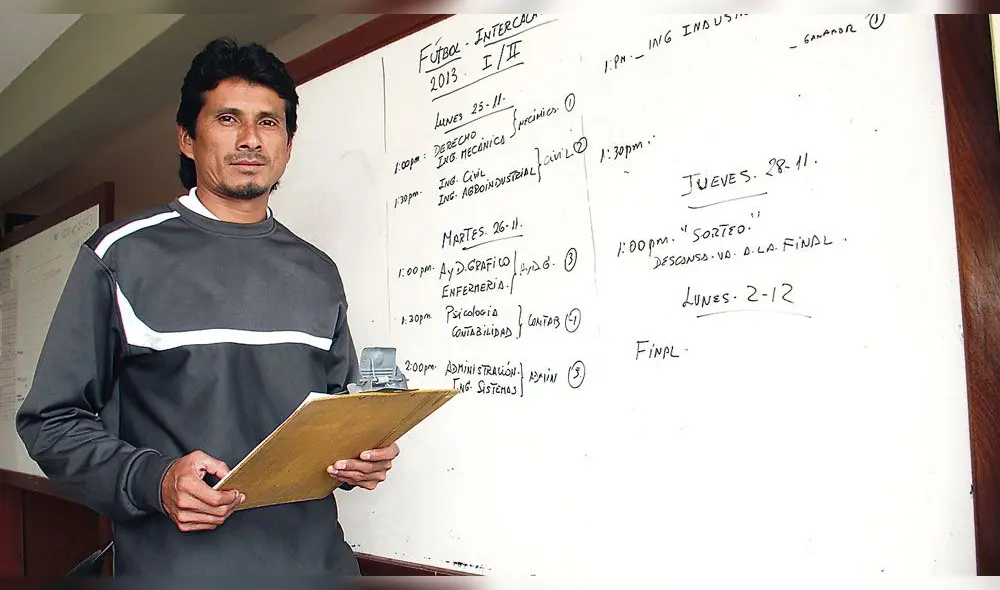 FÚTBOL - INTERCALA
2013. I/II
LUNES 25-11.
1:00pm: DERECHO
ING. MECÁNICA } MECÁNICA. 1
1:30pm. ING. CIVIL
ING. AGROINDUSTRIAL } CIVIL 2
MARTES. 26-11.
1:00pm. A y D. GRAFICO
ENFERMERIA. } A y D.G. 3
1:30pm PSICOLOGIA
CONTABILIDAD } CONTAB -1
2:00pm. ADMINISTRACIÓN.
ING. SISTEMAS } ADMIN 3
1:PM._ ING INDUST
- GANADOR 1
1:30pm.
JUEVES. 28-11.
1:00pm. "SORTEO."
DESCANSA. VA. A. LA. FINAL.
LUNES. 2-12
FINAL.